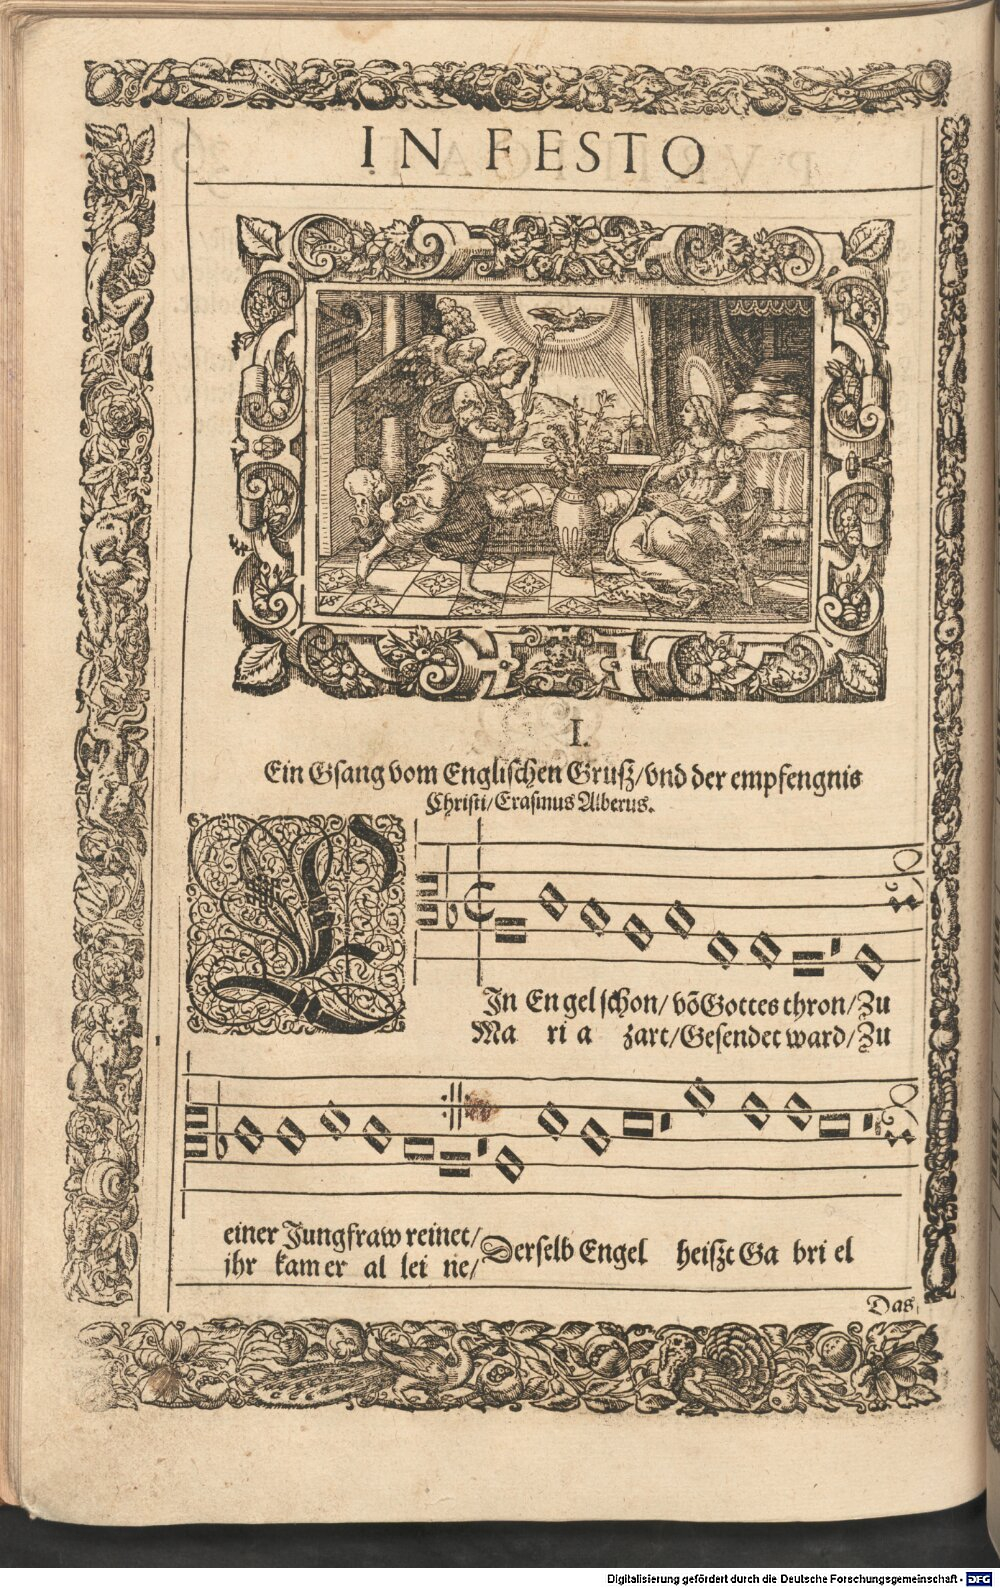 IN FESTO
I.
Ein Gsang vom Englischen Grusz/vnd der empfengnis
Christi/Erasmus Alberus.
EIn Engel schon/ võ Gottes thron/Zu
Ma ri a zart/Gesendet ward/Zu
einer Jungfraw reinet/
jhr kam er al lei ne/
Derselb Engel heiszt Ga bri el
Das
Digitalisierung gefördert durch die Deutsche Forschungsgemeinschaft - DFG